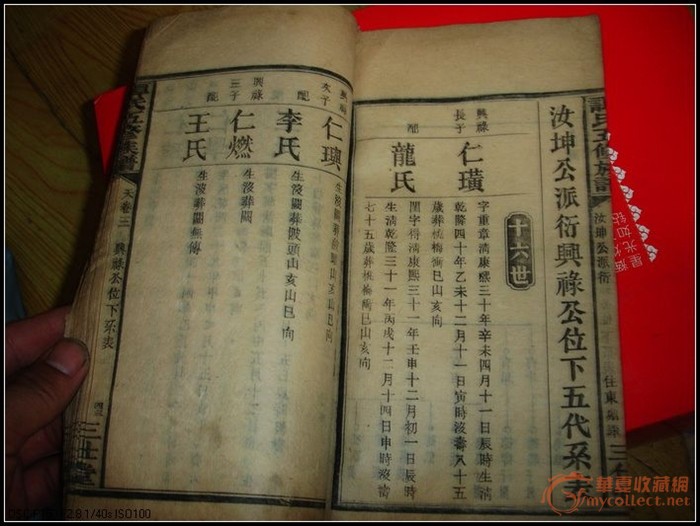 汝坤公派衍興祿公位下五代系
十六世
興祿
長子
仁璜
字重章清康熙三十年辛未四月十一日辰時生清
乾隆四十年乙未十二月十一日寅時沒壽八十五
歲葬 巳山亥向
配
龍氏
閨字 清康熙三十一年壬申十二月初一日辰時
生清乾隆三十一年丙戌十二月十四日申時沒壽
七十五歲葬 巳山亥向
興祿
次子
仁璵
配
李氏
生沒闕葬陂頭山亥山巳向
興祿
三子
仁燃
生沒葬闕
配
王氏
生沒葬闕無傳
氏五修族譜
天卷三
興祿公位下系表
三仕堂
氏五修族譜
汝坤公派衍
華夏收藏網
mycollect.net
1/40s ISO100